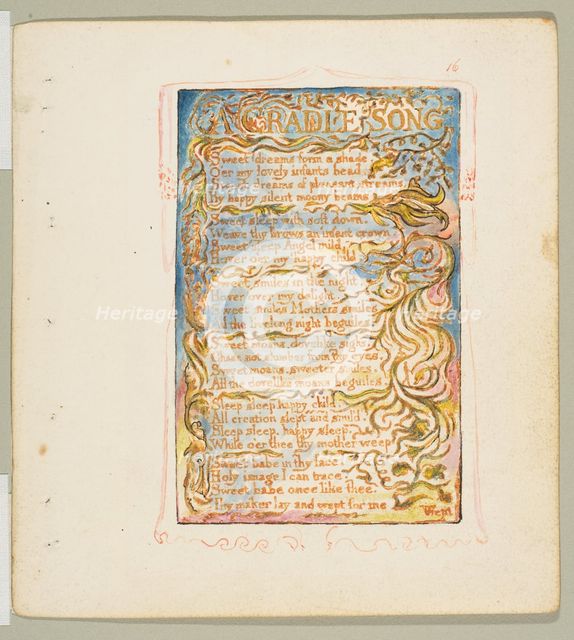 16
A CRADLE SONG
Sweet dreams form a shade,
O'er my lovely infants head.
Sweet dreams of pleasant streams,
By happy silent moony beams
Sweet sleep with soft down,
Weave thy brows an infant crown.
Sweet sleep Angel mild,
Hover o'er my happy child
Sweet smiles in the night,
Hover over my delight.
Sweet smiles Mothers smiles
All the livelong night beguiles.
Sweet moans, dovelike sighs,
Chase not slumber from thy eyes.
Sweet moans, sweeter smiles.
All the dovelike moans beguiles.
Sleep sleep happy child.
All creation slept and smil'd.
Sleep sleep, happy sleep,
While o'er thee thy mother weep
Sweet babe in thy face,
Holy image I can trace.
Sweet babe once like thee,
Thy maker lay and wept for me
Wept
Heritage
Heritage
Heritage